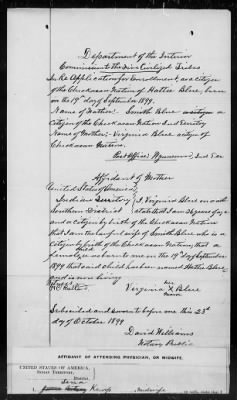 Department of the Interior
Commission to the Five Civilized Tribes
In Re Application for Enrollment, as a citizen
of the Chickasaw Nation, of Hattie Blue, born
on the 19th day of September 1899.
Name of Father: Smith Blue a citizen
Citizen of the Chickasaw Nation Ind Territory
Name of Mother: Virginia Blue citizen of
Chickasaw Nation.
Post Office: Ind Ter
Affidavit of Mother
United States of America
Indian Territory
Southern District
I Virginia Blue on oath
state that I am 26 years of age
and a citizen by birth of the Chickasaw Nation
that I am the lawful wife of Smith Blue who is a
citizen by birth of the Chickasaw Nation, that a
female child was born to me on the 19th day of September
1899 that said child has been named Hattie Blue
and is now living
her
Virginia X Blue
mark
Subscribed and sworn to before me this 23d
day of October 1899
David Williams
Notary Public
AFFIDAVIT OF ATTENDING PHYSICIAN, OR MIDWIFE.
UNITED STATES OF AMERICA,
INDIAN TERRITORY,
District